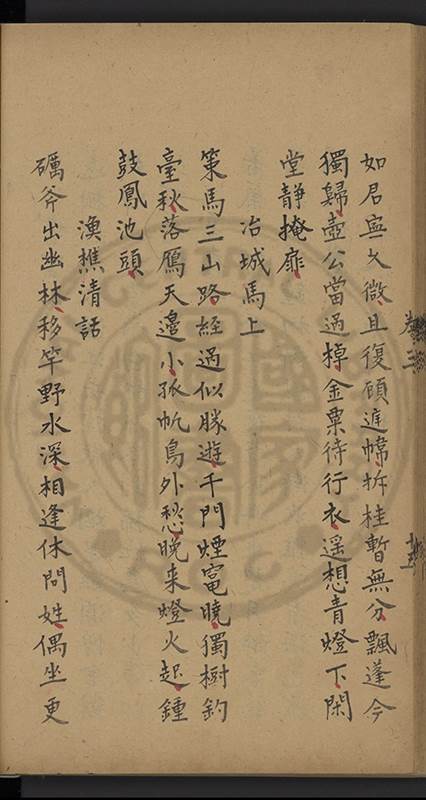 如君寧久微且復顧進幃折桂暫無分飄蓬今
獨歸壺公當過掉金粟待行衣遥想青燈下閑
堂靜掩扉
冶城馬上
策馬三山路經過似勝遊千門煙寵曉獨樹釣
臺秋落鴈天邉小孤帆鳥外愁晚来燈火起鍾
鼓鳳池頭
漁樵清話
礪斧出幽林移竿野水深相逢休問姓偶坐更
卷三